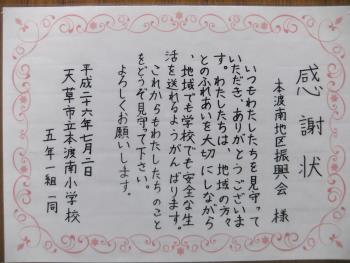 感謝状
本渡南地区振興会 様
いつもわたしたちを見守って
いただき、ありがとうございま
す。わたしたちは、地域の方々
とのふれあいを大切にしながら
、地域でも学校でも安全な生
活を送れるようがんばります。
これからもわたしたちのこと
をどうぞ見守って下さい。
よろしくお願いします。
平成二十六年七月二日
天草市立本渡南小学校
五年一組一同